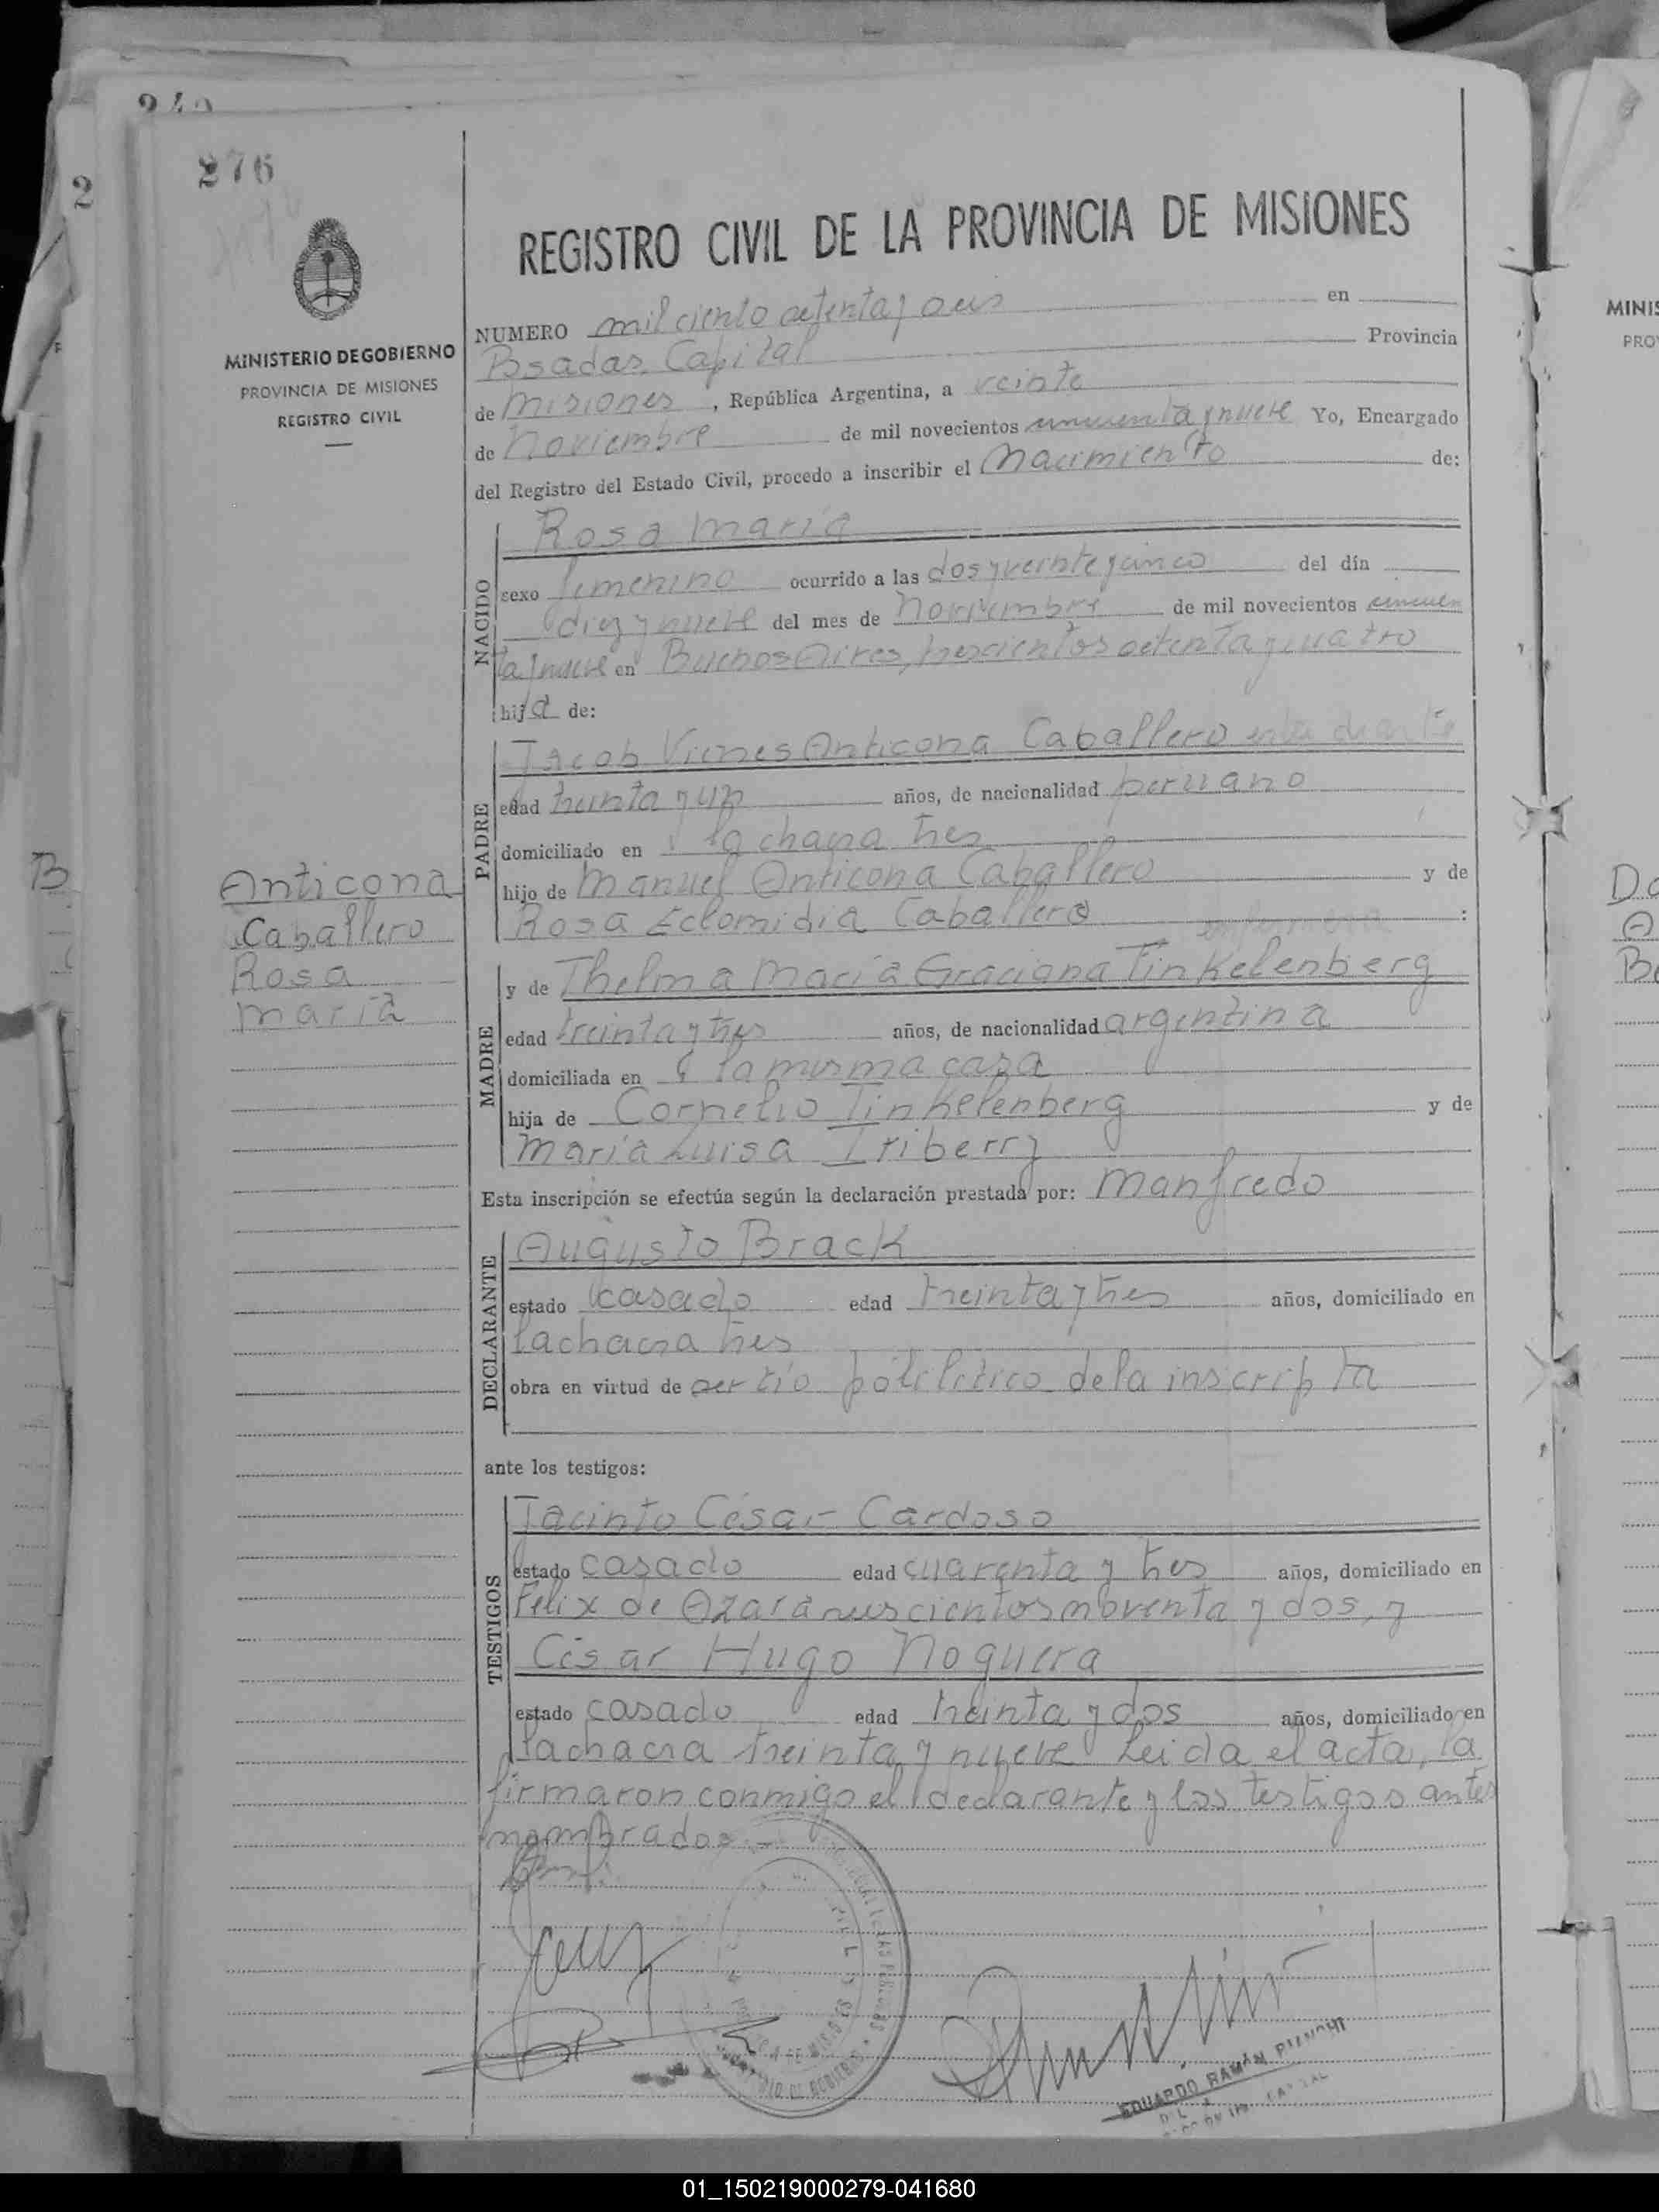 276
MINISTERIO DE GOBIERNO
PROVINCIA DE MISIONES
REGISTRO CIVIL
REGISTRO CIVIL DE LA PROVINCIA DE MISIONES
NUMERO mil ciento setenta y seis en
Posadas, Capital Provincia
de Misiones, República Argentina, a veinte
de Noviembre de mil novecientos cincuenta y nueve Yo, Encargado
del Registro del Estado Civil, procedo a inscribir el Nacimiento de:
NACIDO
Rosa María
sexo femenino ocurrido a las dos y veinte y cinco del día
diez y nueve del mes de Noviembre de mil novecientos cincuen
ta y nueve en Buenos Aires, trescientos setenta y cuatro
hija de:
PADRE
Jacob Anticona Caballero
edad treinta y un años, de nacionalidad peruano
domiciliado en la chacra tres
hijo de Manuel Anticona Caballero y de
Rosa Eclomidia Caballero :
Anticona
Caballero
Rosa
María
MADRE
enfermera
y de Thelma María Graciana Tinkelenberg
edad treinta y tres años, de nacionalidad argentina
domiciliada en la misma casa
hija de Cornelio Tinkelenberg y de
María Luisa Iriberry
Esta inscripción se efectúa según la declaración prestada por: Manfredo
DECLARANTE
Augusto Brack
estado casado edad treinta y tres años, domiciliado en
la chacra tres
obra en virtud de ser tío polilitico de la inscripta
ante los testigos:
TESTIGOS
Jacinto César Cardoso
estado casado edad cuarenta y tres años, domiciliado en
Felix de Azara novecientos noventa y dos, y
César Hugo Noguera
estado casado edad treinta y dos años, domiciliado en
la chacra treinta y nueve Leida el acta, la
firmaron conmigo el declarante y los testigos antes
nombrados.-
EDUARDO RAMÓN PIANCHI
01_150219000279-041680